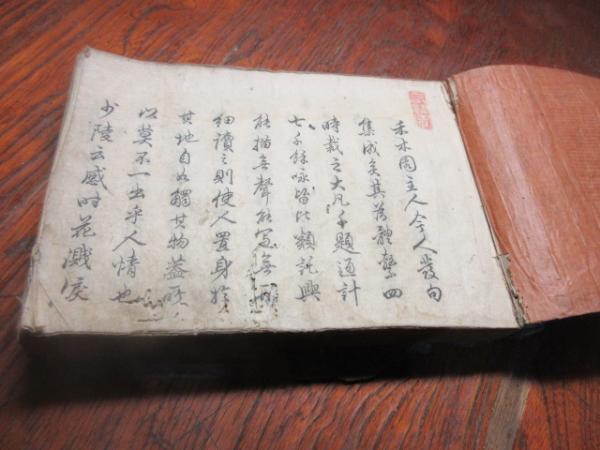 禾木園主人今人發句
集成矣其為體繫四
時裁之大凡千題通計
七千餘咏皆比類託興
能描無聲能寫無
細讀之則使人置身於
其地自如觸其物蓋
以莫不一出乎人情也
少陵云感時花濺淚